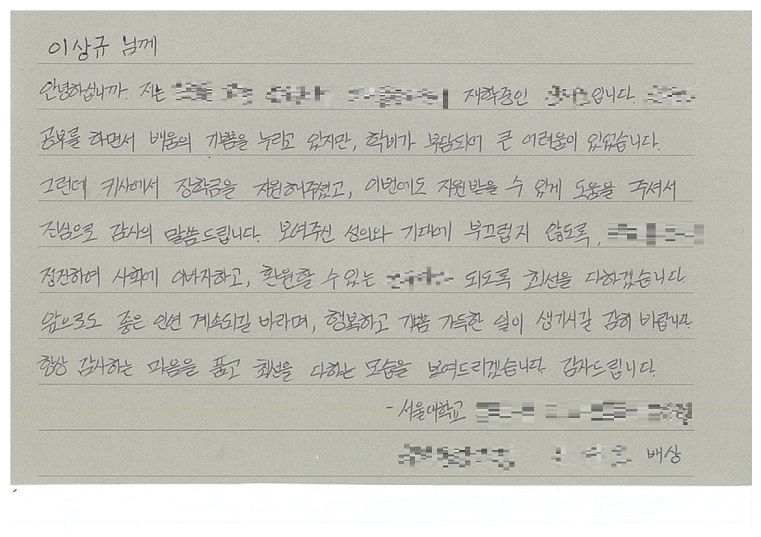 이상규 님께
안녕하십니까. 저는 재학중인 입니다.
공부를 하면서 배움의 기쁨을 누리고 있지만, 학비가 부담되어 큰 어려움이 있었습니다.
그런데 귀사에서 장학금을 지원해주셨고, 이번에도 지원받을 수 있게 도움을 주셔서
진심으로 감사의 말씀드립니다. 보여주신 성의와 기대에 부끄럽지 않도록,
정진하여 사회에 이바지하고, 환원할 수 있는 되도록 최선을 다하겠습니다.
앞으로도 좋은 인연 계속되길 바라며, 행복하고 기쁨 가득한 일이 생기시길 감히 바랍니다.
항상 감사하는 마음을 품고 최선을 다하는 모습을 보여드리겠습니다. 감사드립니다.
- 서울대학교
배상